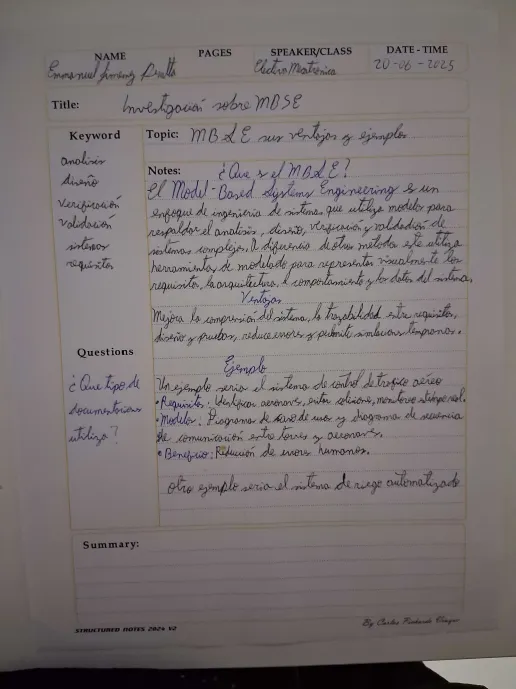 NAME PAGES SPEAKER/CLASS DATE - TIME
Emmanuel Jimenez Electro Mecatronica 20-06-2025
Title: Investigación sobre MBSE
Keyword
analisis
diseño
verificación
validación
sistemas
requisitos
Topic: MBSE sus ventajas y ejemplos
Notes: ¿Que es el MBSE?
El Model-Based Systems Engineering es un
enfoque de ingenieria de sistemas que utiliza modelos para
respaldar el analisis, diseño, verificación y validación de
sistemas complejos. A diferencia de otros metodos este utiliza
herramientas de modelado para representar visualmente los
requisitos, la arquitectura, el comportamiento y los datos del sistema.
Ventajas
Mejora la comprension del sistema, la trazabilidad entre requisitos,
diseño y pruebas, reduce errores y permite simulaciones tempranas.
Questions
¿Que tipo de
documentación
utiliza?
Ejemplo
Un ejemplo seria el sistema de control de trafico aéreo
• Requisitos: Identificar aeronaves, evitar colisiones, monitoreo a tiempo real.
• Modelos: Diagrama de caso de uso y diagrama de secuencia
de comunicación entre torres y aeronaves.
• Beneficio: Reducción de errores humanos.
otro ejemplo seria el sistema de riego automatizado
Summary:
STRUCTURED NOTES 2024 V2
By Carlos